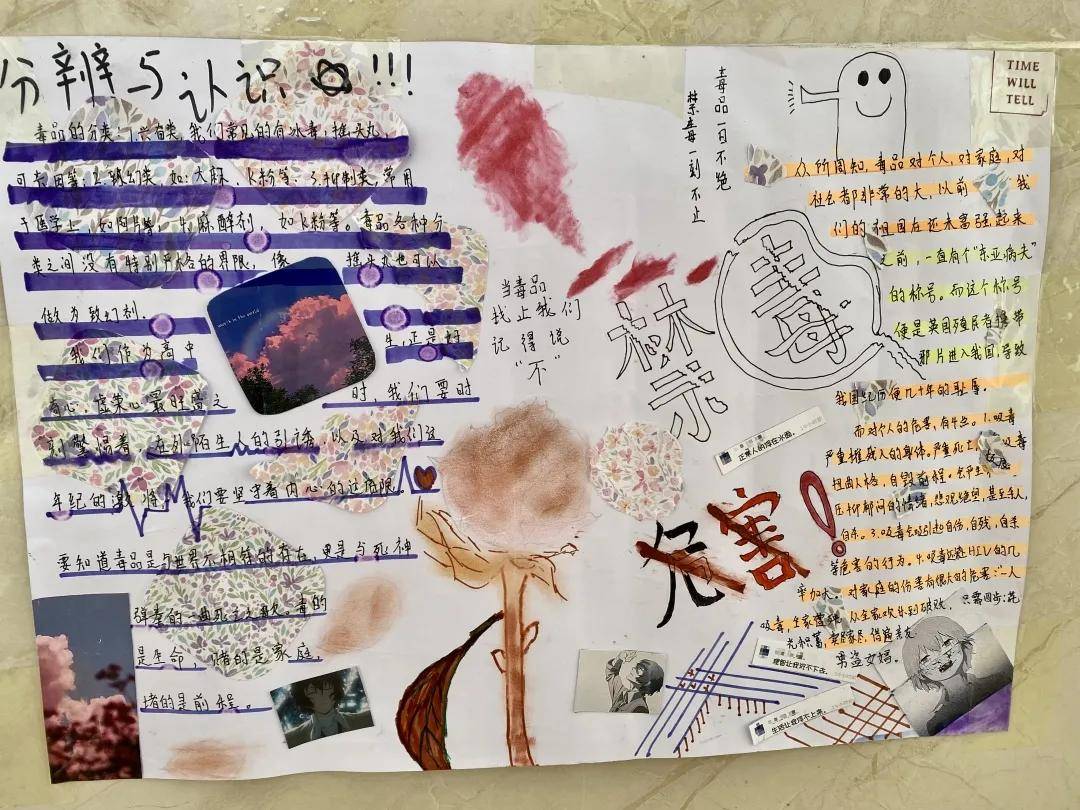 分辨与认识!!!
毒品的分类:1.兴奋类,我们常见的有冰毒,摇头丸,
可卡因等;2.致幻类,如:大麻、K粉等;3.抑制类,常用
于医学上,如阿片等,4.麻醉剂,如K粉等。毒品各种分
类之间没有特别严格的界限,像 摇头丸也可以
做为致幻剂。
我们作为高中 生,正是好
奇心,虚荣心最旺盛之 时,我们要时
刻警惕着,在外陌生人的引诱,以及对我们这
年纪的激 我们要坚守着内心的这
要知道毒品是与世界不相 的存在,更是与死神
弹奏的一曲死亡之 毒的
是生命,赌的是家庭,
堵的是前程。
当毒品
找上我们
记得说
“不”
毒品一日不绝
禁毒一刻不止
TIME
WILL
TELL
禁
毒
众所周知,毒品对个人,对家庭,对
社会都非常的大,以前 我
们的祖国在还未富强起来
之前,一直有个“东亚病夫”
的称号。而这个称号
便是英国殖民者携带
鸦片进入我国,导致
我国经历便几十年的耻辱。
而对个人的危害,有 1.吸毒
严重摧残人的身体。严重死亡 吸毒
扭曲人格,自毁前程。会产生
压抑郁闷的情绪,悲观绝望,甚至杀人,
自杀。3.吸毒会引起自伤,自残,自杀
等危害的行为。4.吸毒还感HIV的几
率加大。对家庭的伤害有很大的危害:一人
吸毒,全家 从全家欢乐到破败,只需四步:花
光积蓄,卖尽家产,借遍亲友
男盗女娼。
危害!
正常人的浮在水面。
理智让我好不下去。
生活让我浮不上来。